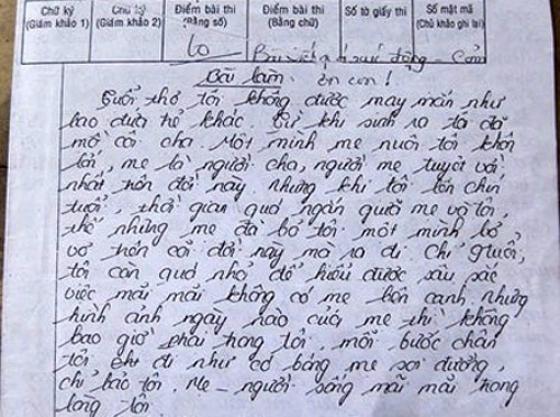 Chữ ký Chữ ký Điểm bài thi Điểm bài thi Số tờ giấy thi Số mật mã
(Giám khảo 1) (Giám khảo 2) (Bằng số) (Bằng chữ) (Chủ khảo ghi lại)
10 Bài viết xúc động - Cảm
Bài làm. ơn con!
Tuổi thơ tôi không được may mắn như
bao đứa trẻ khác. Từ khi sinh ra tôi đã
mồ côi cha. Một mình mẹ nuôi tôi khôn
lớn, mẹ là người cha, người mẹ tuyệt vời
nhất trên đời này nhưng khi tôi lên chín
tuổi, thời gian quá ngắn giữa mẹ và tôi,
thế nhưng mẹ đã bỏ tôi một mình bơ
vơ trên cõi đời này mà ra đi. Chỉ 9 tuổi,
tôi còn quá nhỏ để hiểu được sâu sắc
việc mãi mãi không có mẹ bên cạnh, những
hình ảnh ngày nào của mẹ thì không
bao giờ phai trong tôi, mỗi bước chân
tôi khi đi như có bóng mẹ soi đường,
chỉ bảo tôi. Mẹ - người sống mãi mãi trong
lòng tôi.